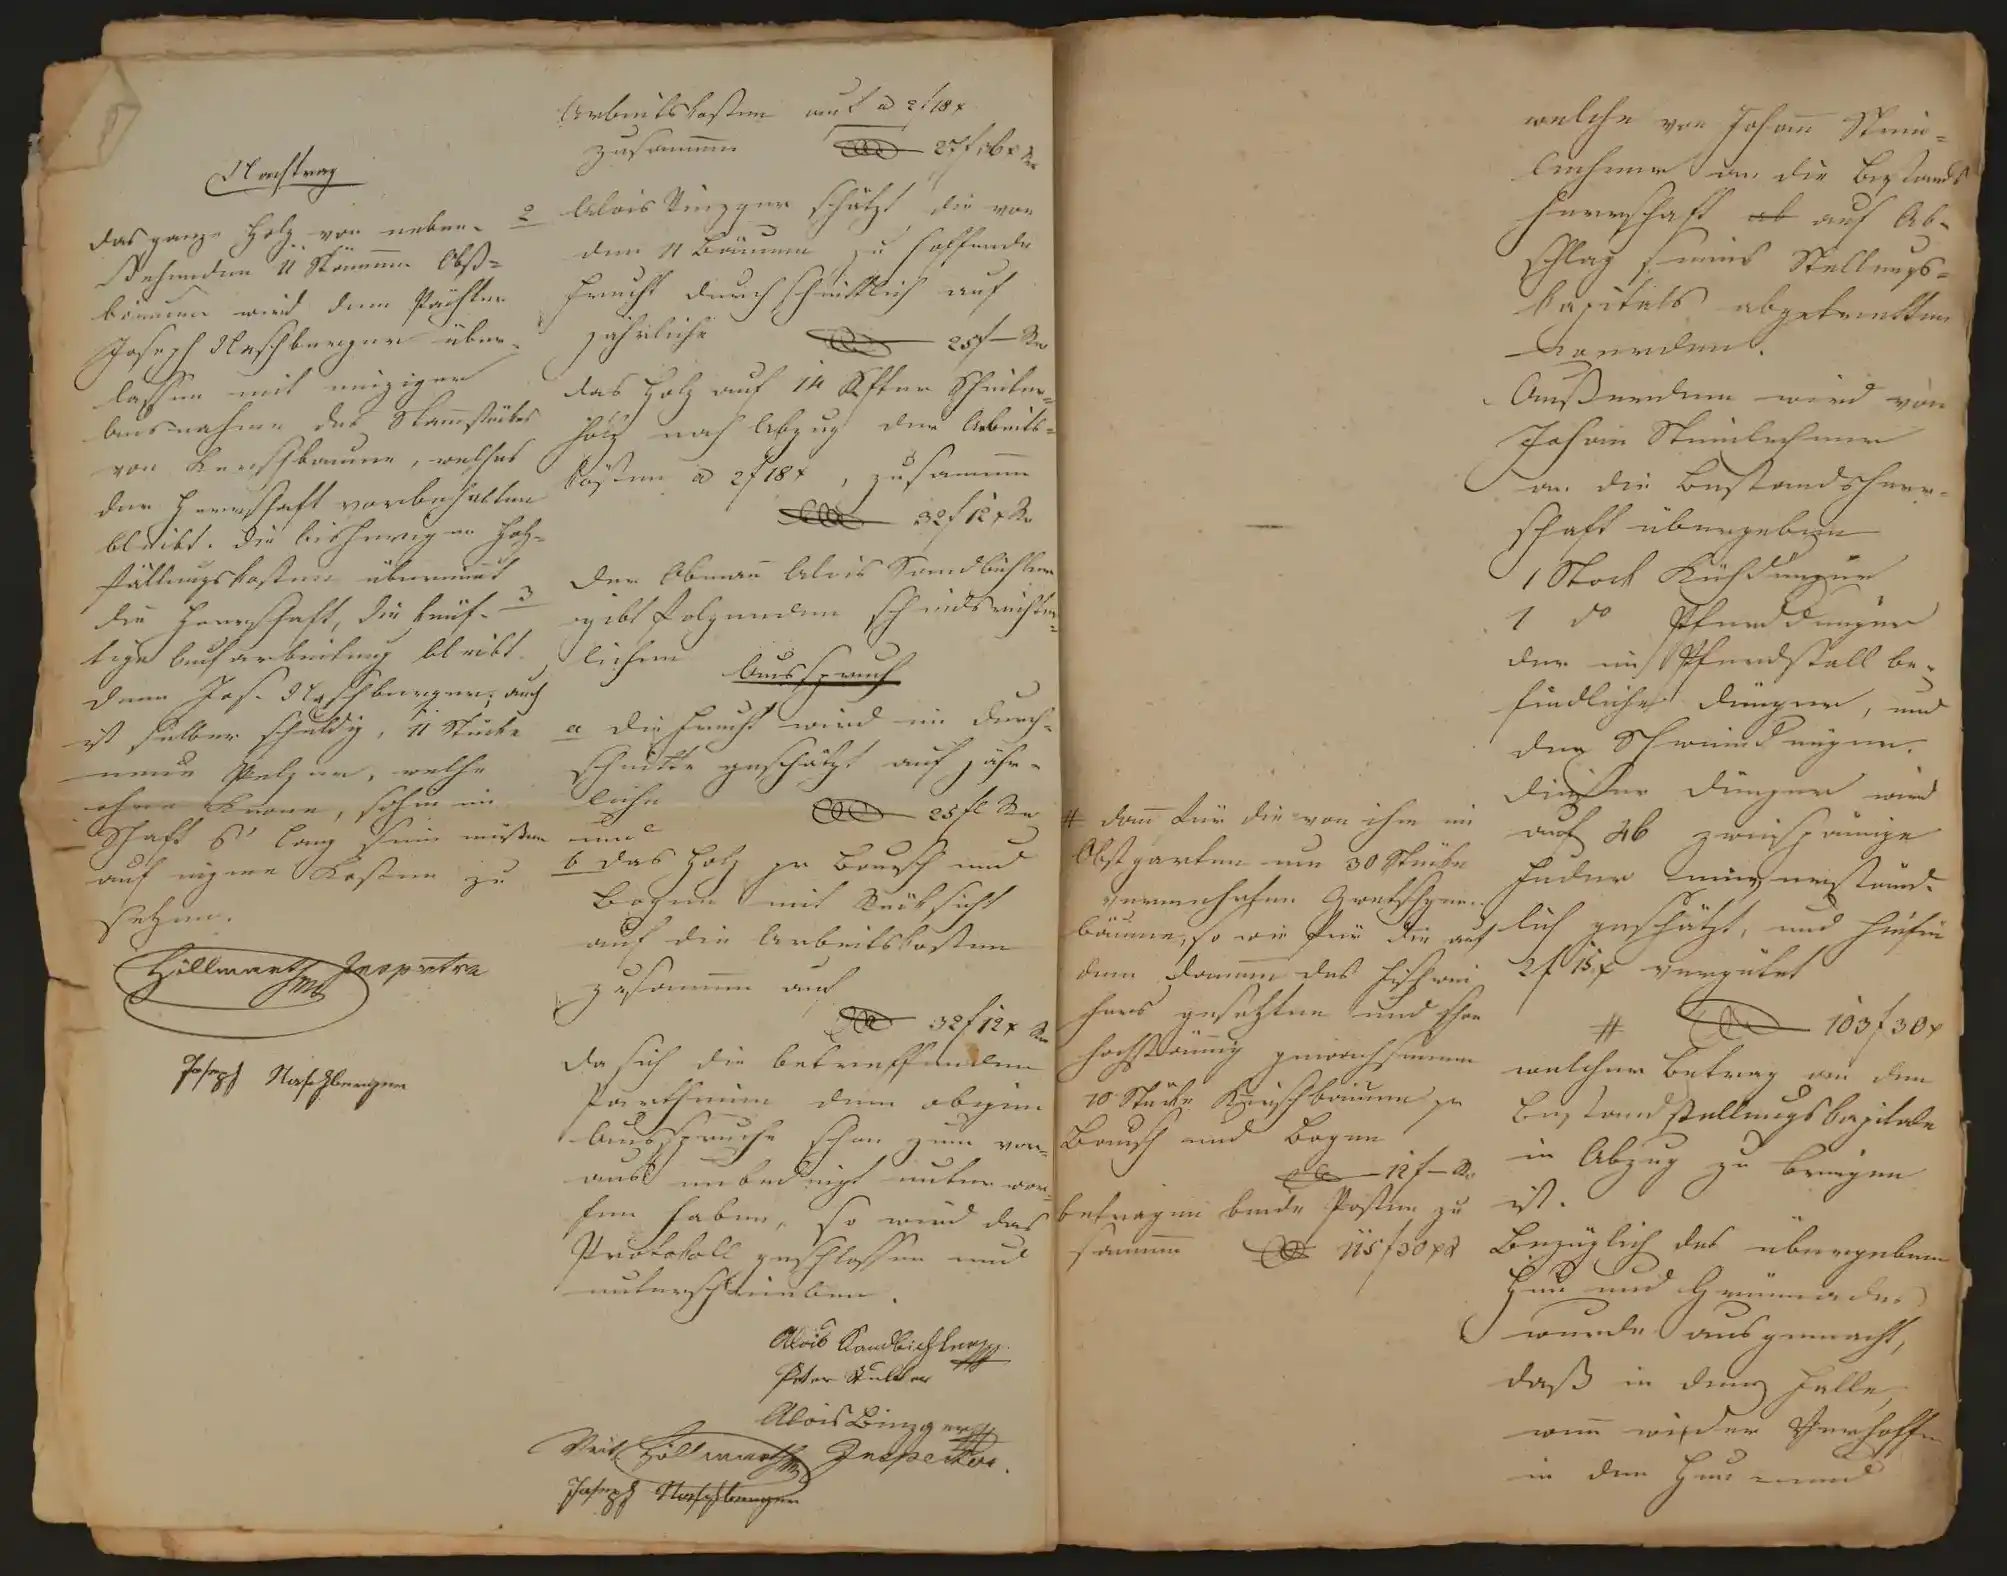 Nachtrag
das ganze Holz von neben-
stehenden 11 Stämmen Obst-
bäumen wird dem Pächter
Joseph Naschberger über-
lassen mit einziger
Ausnahme des Stammstückes
von Kerschbaume, welches
der Herrschaft vorbehalten
bleibt. die bisherigen Holz-
fällungskosten übernimmt
die Herrschaft, die künf-
tige Aufarbeitung bleibt
dem Jos. Naschberger; auch
ist selber schuldig, 11 Stücke
neue Pelzer, welche
ohne Krone, schon im
Schaft 6' lang sein müßen
auf eigene Kosten zu
setzen.
Höllwarth Inspektor
Joseph Naschberger
Arbeitskosten auf a 2f 18x
zusammen 27f 16x Rw
2 Alois Binzger schätzt die von
den 11 Bäumen zu hoffende
Frucht durchschnittlich auf
jährliche 25f – Rw
das Holz auf 14 Klfter Scheiter-
holz nach Abzug der Arbeits-
kösten a 2f 18x, zusammen
32f 12x Rw
3 Der Obmann Alois Sandbichler
gibt folgenden schiedsrichter-
lichen
Ausspruch
a die Frucht wird im Durch-
schnitte geschätzt auf jähr-
liche 25 fl Rw
und
b das Holz pr Bausch und
Bogen mit Rücksicht
auf die Arbeitskosten
zusammen auf
32f 12x Rw
Da sich die betreffenden
Partheien dem obigen
Ausspruche schon zum vor-
aus unbedingt unterwor-
fen haben, so wird das
Protokoll geschlossen und
unterschrieben.
Alois Sandbichler
Peter
Alois Binzger
Veit Höllwarth Inspektor.
Joseph Naschberger
# dann für die von ihm im
Obstgarten um 30 Stücke
vermehrten Zwetschgen-
bäume, so wie für die auf
dem Damme des Fischwei
hers gesetzten und schon
hochstämmig gewachsenen
10 Stücke Kirschbäume pr
Bausch und Bogen
12f – Rw
betragen beide Posten zu
sammen 115f 30x
welche von Johann Stein-
lechner an die Bestands
herrschaft ab auf Ab-
schlag seines Stellungs-
Kapitals abgetretten
werden.
Außerdem wird von
Johann Steinlechner
an die Bestandsherr-
schaft übergeben
1 Stock Kühdünger
1 do Pferddünger
der im Pferdstall be-
findliche Dünger, und
der Schweindünger.
dieser Dünger wird
auf 46 zweispännige
Fuder einverständ-
lich geschätzt, und hiefür
2f 15x vergütet
# 103f 30x
welcher Betrag an dem
Bestandstellungskapitale
in Abzug zu bringen
ist.
Bezüglich des übergebenen
Heu und Gruemades
wurde ausgemacht,
daß in dem Falle,
wenn wieder Verhoffen
in den Heu- und